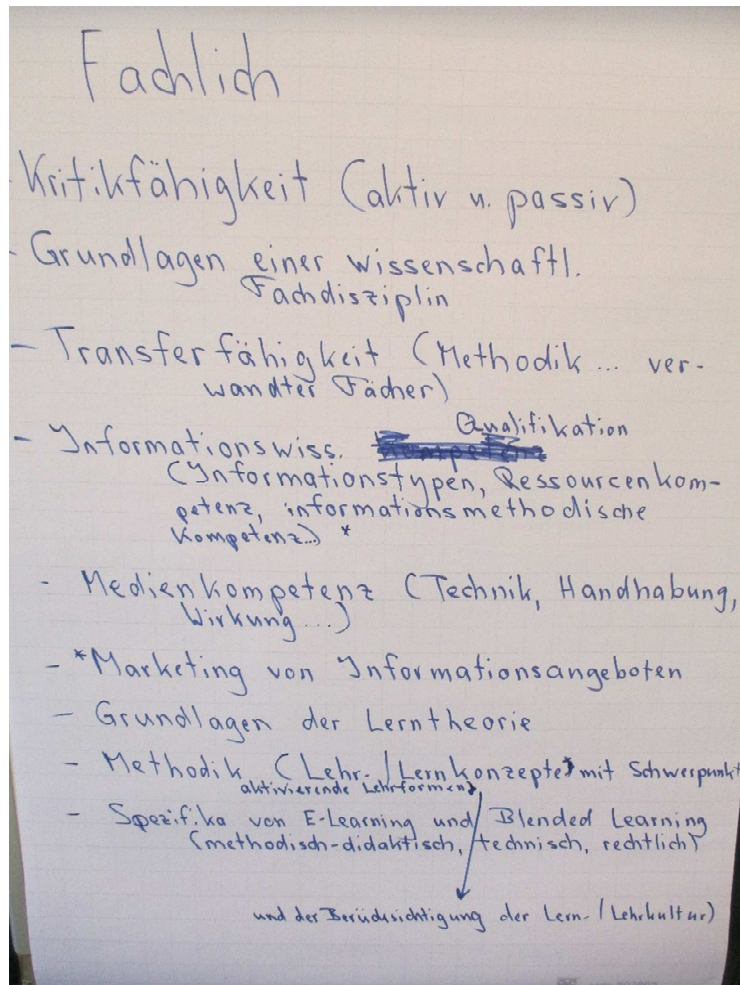 Fachlich
- Kritikfähigkeit (aktiv u. passiv)
- Grundlagen einer wissenschaftl.
Fachdisziplin
- Transferfähigkeit (Methodik... ver-
wandter Fächer)
- Informationswiss. Qualifikation
(Informationstypen, Ressourcenkom-
petenz, informationsmethodische
Kompetenz...) *
- Medienkompetenz (Technik, Handhabung,
Wirkung...)
- *Marketing von Informationsangeboten
- Grundlagen der Lerntheorie
- Methodik (Lehr-/Lernkonzepte mit Schwerpunkt
aktivierende Lehrformen)
- Spezifika von E-Learning und Blended Learning
(methodisch-didaktisch, technisch, rechtlich)
und der Berücksichtigung der Lern-/Lehrkultur)